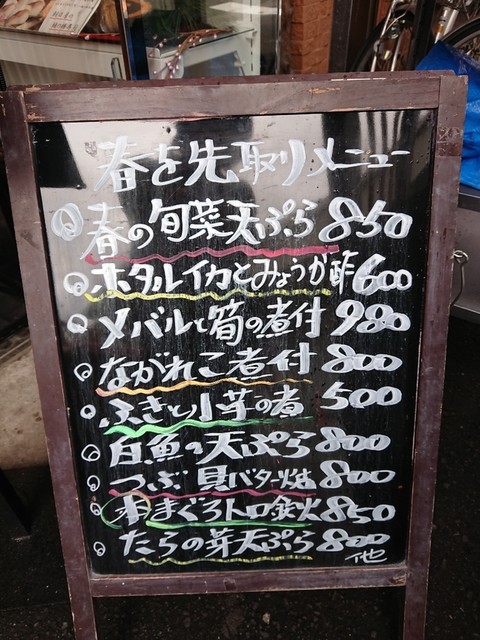 春を先取りメニュー
春の旬菜天ぷら 850
ホタルイカとみょうが酢 600
メバルと筍の煮付 980
ながれこ煮付 800
ふきと小芋の煮 500
白魚の天ぷら 800
つぶ貝バター焼 800
本まぐろトロ鉄火 850
たらの芽天ぷら 800
他